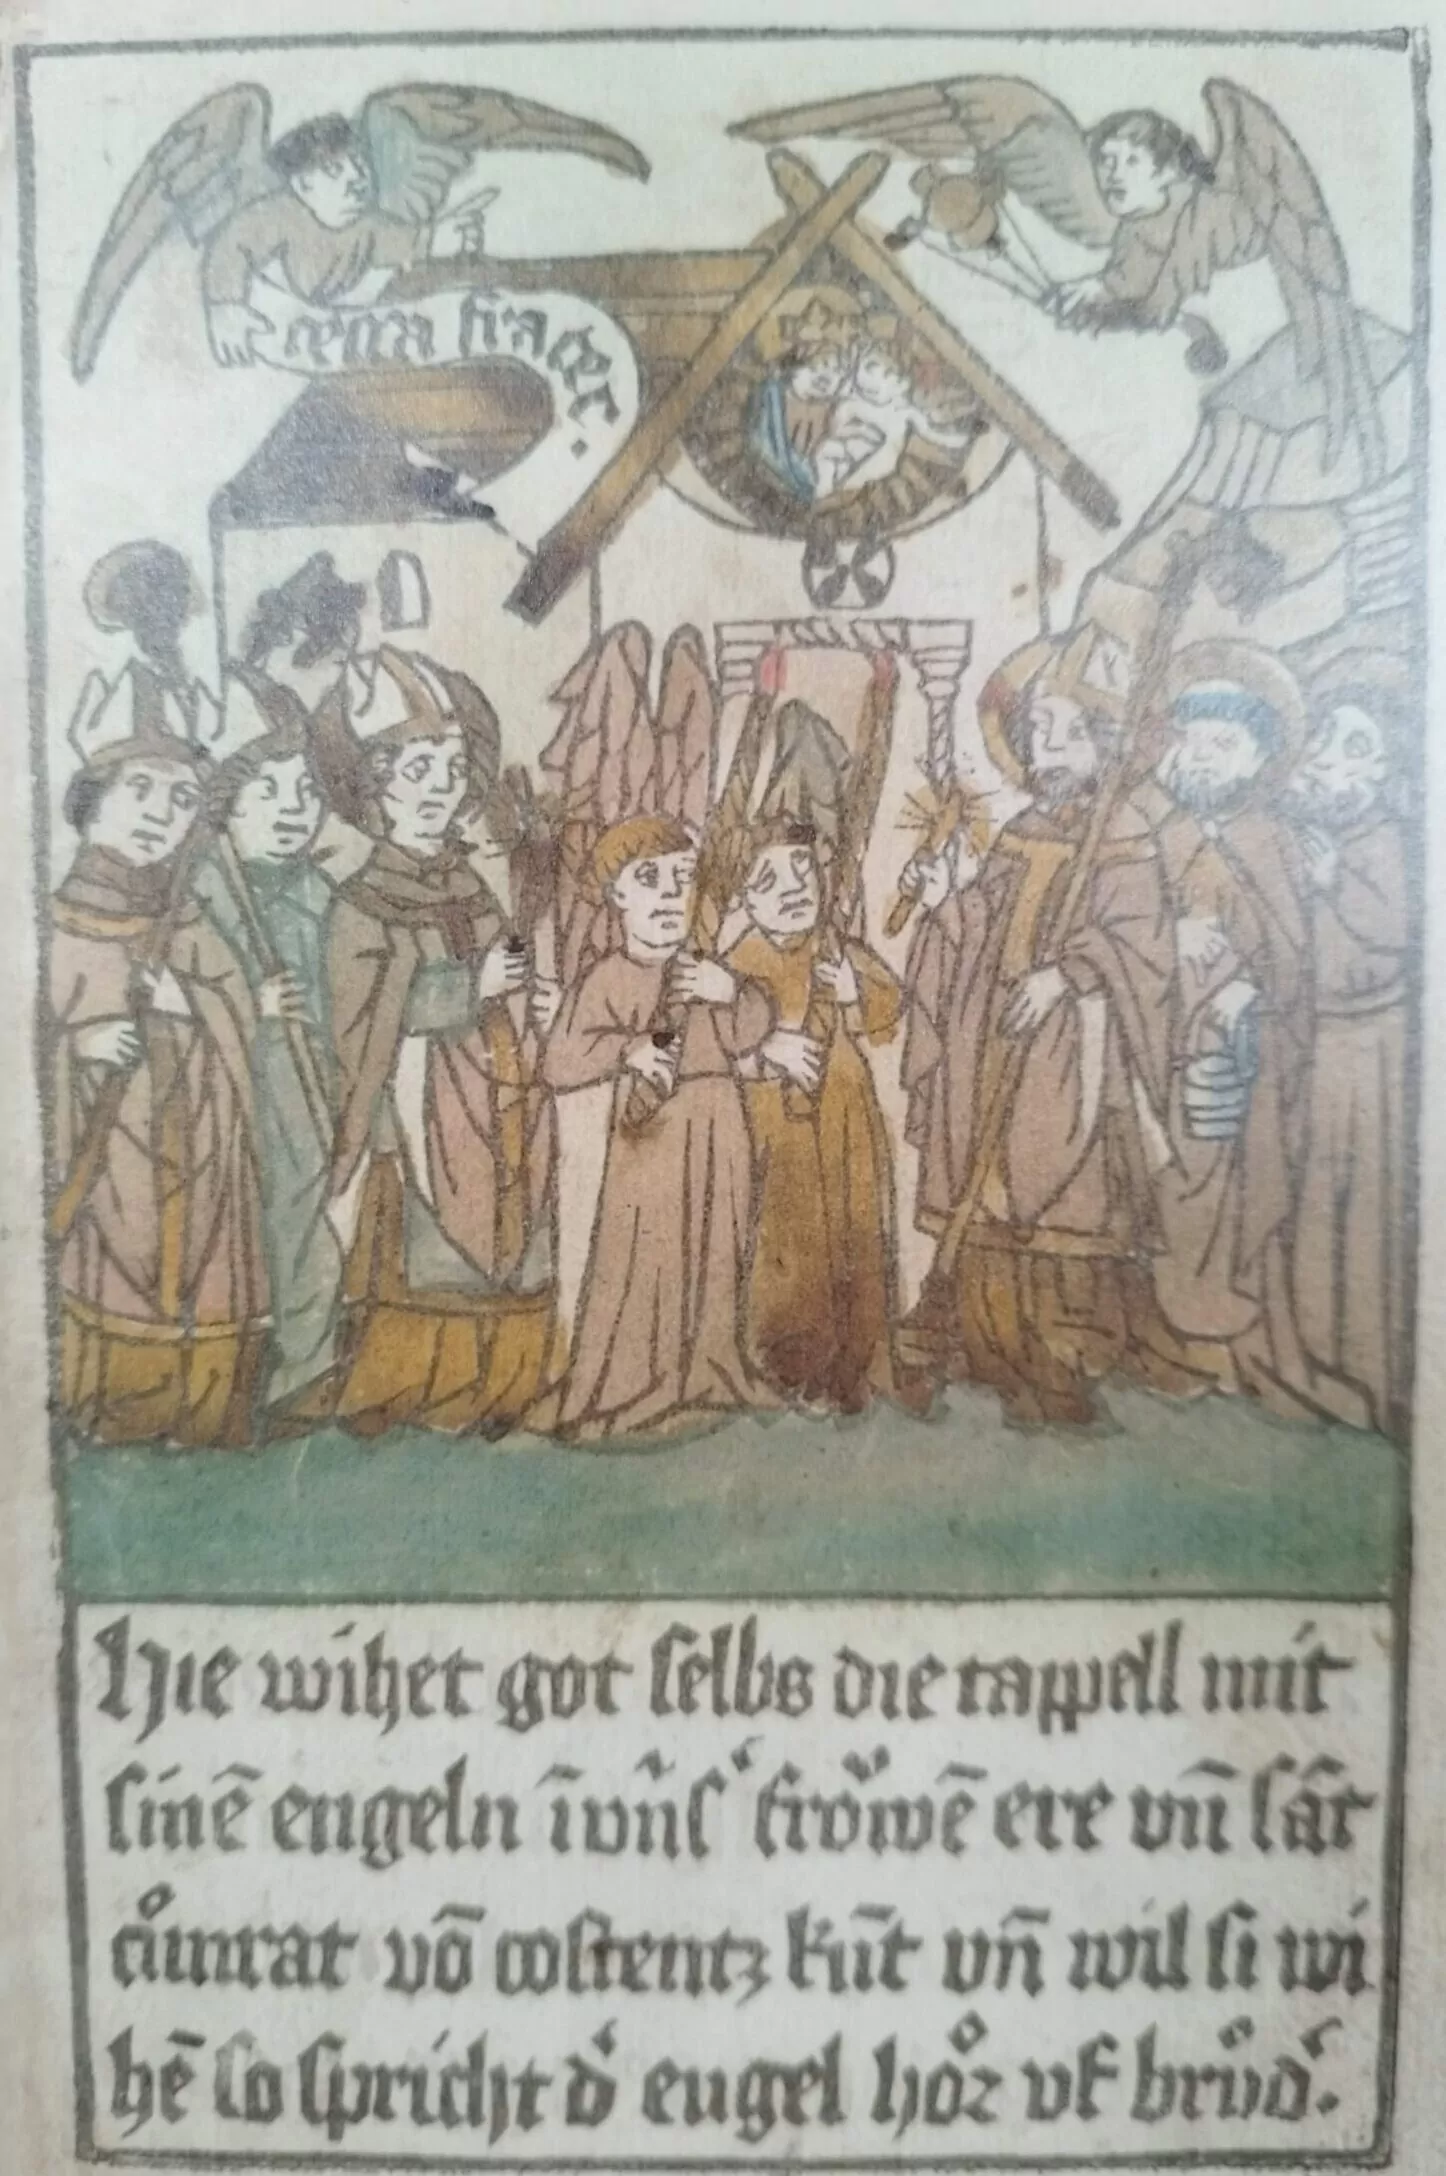 cessa frater.
Hie wihet got selbs die cappell mit
sinē engeln ī vñs͛ frȍwē ere vñ sāt
cůnrat vō costentz kūt vñ wil si wi
hē so spricht d͛ engel hoͤꝛ vf brůd͛.